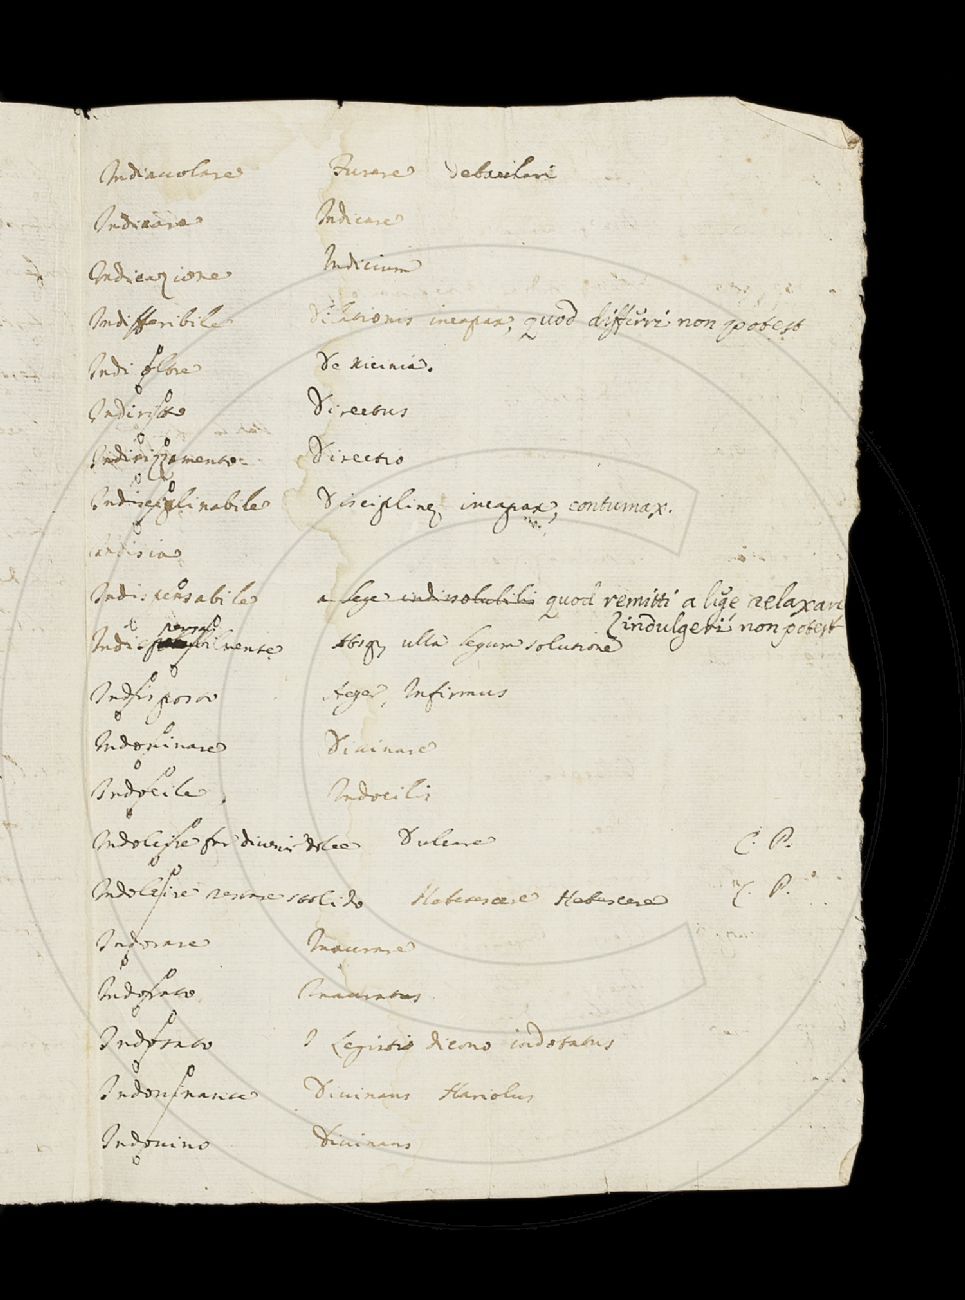 Indiavolare Furere debacchari
Indicare Indicare
Indicazione Indicium
Indifferibile Dilationis incapax, quod differri non potest
Indi oltre De vicinia.
Indiritto Directus
Indirizzamento Directio
Indisciplinabile Disciplinę incapax, contumax.
Indispensabile a lege indissolubili quod remitti a lege relaxari
indulgeri non potest
Absq; ulla legum solutione
Indisposto Aeger, Infirmus
Indovinare Divinare
Indocile Indocilis
Indolcire far divenir dolce Dulcare C. P.
Indolcire venire stolido Hebescere Hebescere C. P.
Indorare Inaurare
Indorato Inauratus
Indotato I Legisti dicono indotatus
Divinans Hariolus
Indovino Divinans